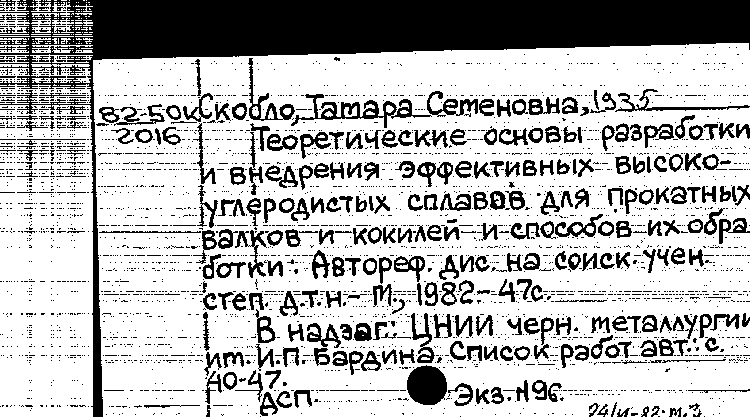 82-50к Скобло, Тамара Семеновна, 1935
2016 Теоретические основы разработки
и внедрения эффективных высоко-
углеродистых сплавов для прокатных
валков и кокилей и способов их обра
ботки: Автореф. дис. на соиск. учен.
степ. д.т.н.- М., 1982.- 47с.
В надзаг.: ЦНИИ черн. металлургии
им. И.П. Бардина. Список работ авт.: с.
40-47.
ДСП. Экз. №96.